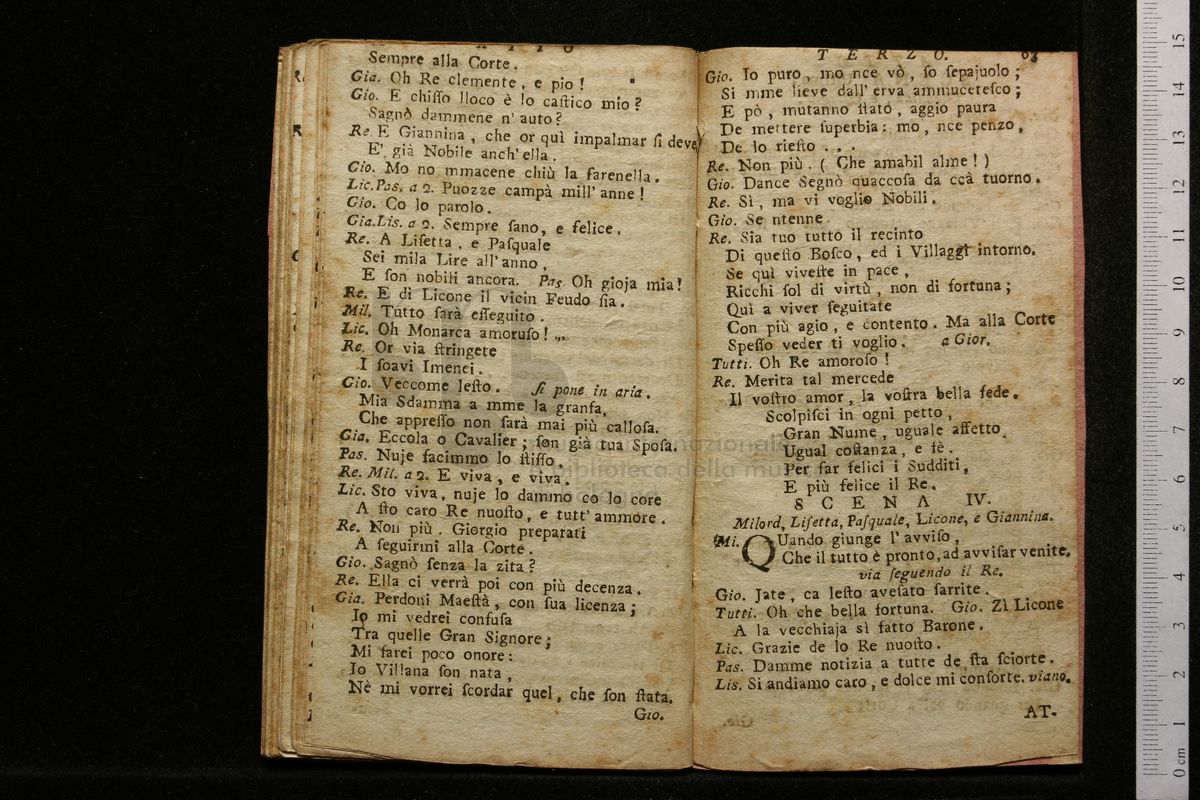 ATTO
Sempre alla Corte.
Gia. Oh Re clemente, e pio!
Gio. E chiſſo lloco è lo caſtico mio?
Sagnò dammene n' auto?
Re. E Giannina, che or quì impalmar ſi deve,
E' già Nobile anch' ella.
Gio. Mo no mmacene chiù la farenella.
Lic. Pas. a 2. Puozze campà mill' anne!
Gio. Co lo parolo.
Gia. Lis. a 2. Sempre ſano, e felice.
Re. A Liſetta, e Paſquale
Sei mila Lire all' anno,
E ſon nobili ancora. Pas. Oh gioja mia!
Re. E di Licone il vicin Feudo ſia.
Mil. Tutto ſarà eſſeguito.
Lic. Oh Monarca amoruſo!
Re. Or via ſtringete
I ſoavi Imenei.
Gio. Veccome leſto. ſi pone in aria.
Mia Sdamma a mme la granfa,
Che appreſſo non farà mai più calloſa.
Gia. Eccola o Cavalier; ſon già tua Spoſa.
Pas. Nuje facimmo lo ſtiſſo.
Re. Mil. a 2. E viva, e viva.
Lic. Sto viva, nuje lo dammo co lo core
A ſto caro Re nuoſto, e tutt' ammore.
Re. Non più. Giorgio preparati
A ſeguirmi alla Corte.
Gio. Sagnò ſenza la zita?
Re. Ella ci verrà poi con più decenza.
Gia. Perdoni Maeſtà, con ſua licenza;
Io mi vedrei confuſa
Tra quelle Gran Signore;
Mi farei poco onore:
Io Villana ſon nata,
Nè mi vorrei ſcordar quel, che ſon ſtata.
Gio.
TERZO. 63
Gio. Io puro, mo nce vò, ſo ſepajuolo;
Si mme lieve dall' erva ammuceteſco;
E pò, mutanno ſtato, aggio paura
De mettere ſuperbia: mo, nce penzo,
De lo rieſto . . .
Re. Non più. ( Che amabil alme! )
Gio. Dance Segnò quaccoſa da ccà tuorno.
Re. Sì, ma vi voglio Nobili.
Gio. Se ntenne.
Re. Sia tuo tutto il recinto
Di queſto Boſco, ed i Villaggi intorno.
Se quì viveſte in pace,
Ricchi ſol di virtù, non di fortuna;
Quì a viver ſeguitate
Con più agio, e contento. Ma alla Corte
Speſſo veder ti voglio. a Gior.
Tutti. Oh Re amoroſo!
Re. Merita tal mercede
Il voſtro amor, la voſtra bella fede.
Scolpiſci in ogni petto,
Gran Nume, uguale affetto,
Ugual coſtanza, e fè.
Per far felici i Sudditi,
E più felice il Re.
SCENA IV.
Milord, Liſetta, Paſquale, Licone, e Giannina.
Mi. QUando giunge l' avviſo,
Che il tutto è pronto, ad avviſar venite.
via ſeguendo il Re.
Gio. Jate, ca leſto aveſato ſarrite.
Tutti. Oh che bella fortuna. Gio. Zì Licone
A la vecchiaja sì fatto Barone.
Lic. Grazie de lo Re nuoſto.
Pas. Damme notizia a tutte de ſta ſciorte.
Lis. Si andiamo caro, e dolce mi conforte. viano.
AT-